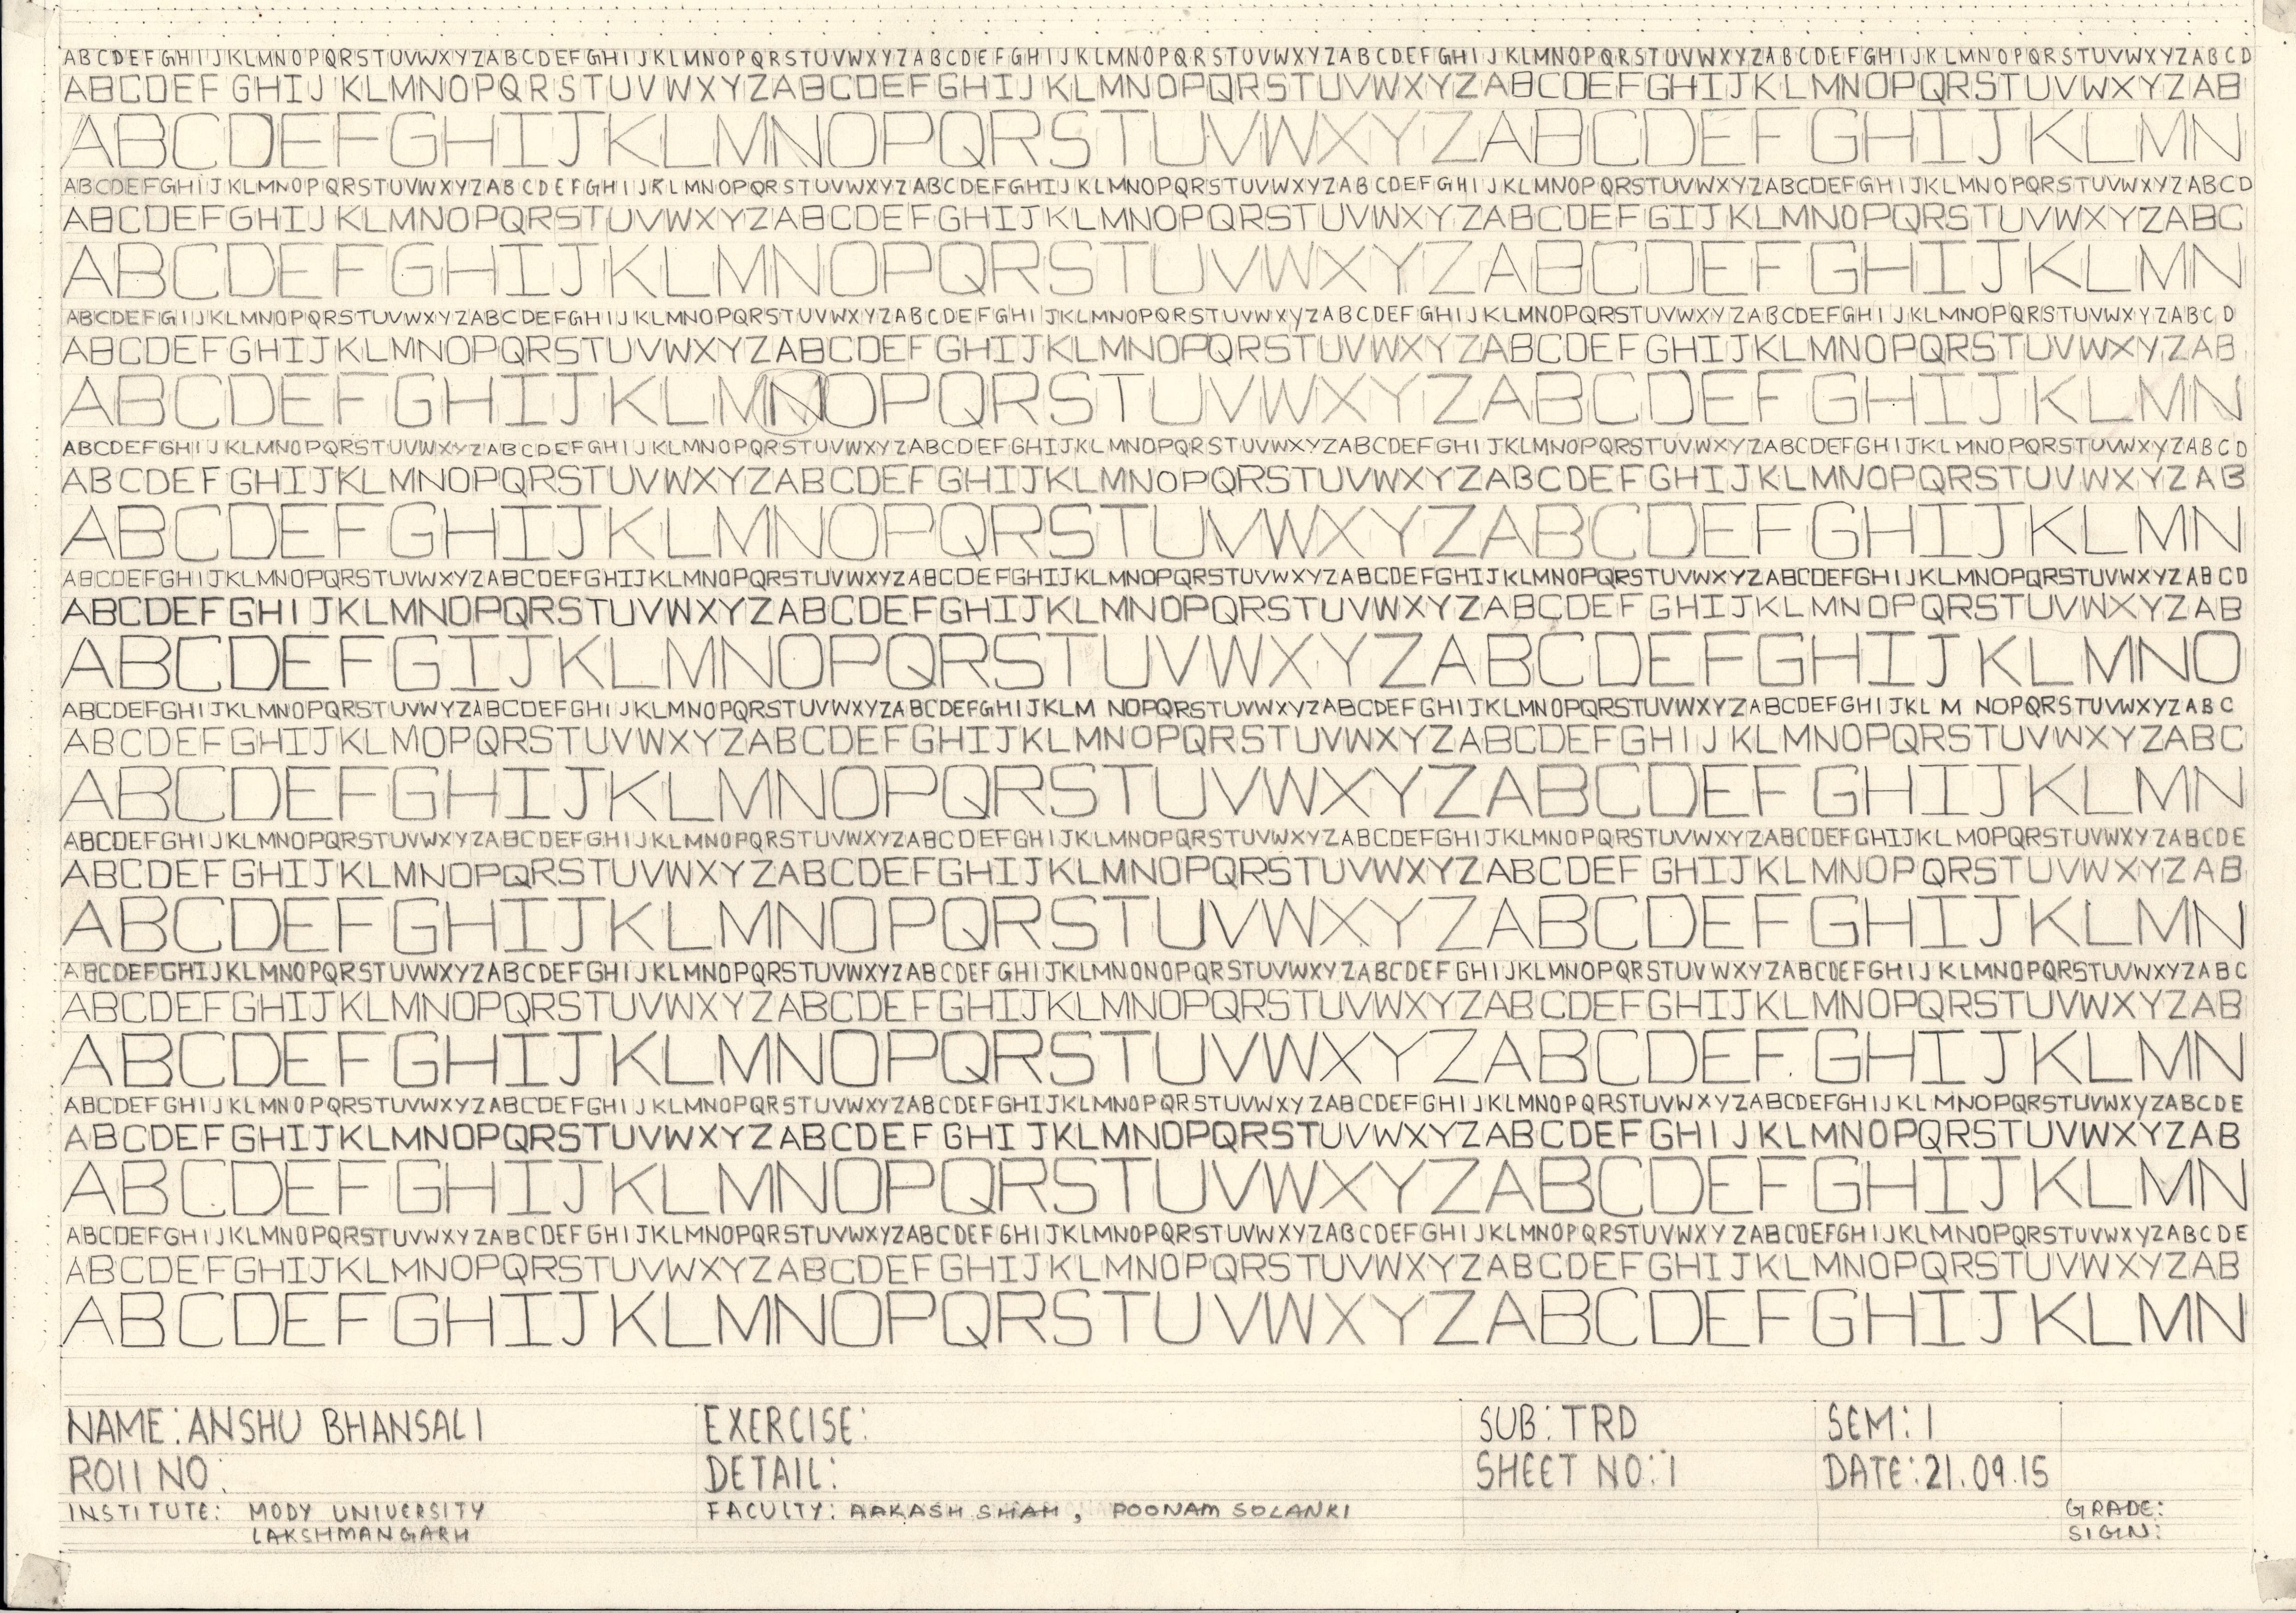 ABCDEFGHIJKLMNOPQRSTUVWXYZABCDEFGHIJKLMNOPQRSTUVWXYZABCDEFGHIJKLMNOPQRSTUVWXYZABCDEFGHIJKLMNOPQRSTUVWXYZABCDEFGHIJKLMNOPQRSTUVWXYZABCD
ABCDEFGHIJKLMNOPQRSTUVWXYZABCDEFGHIJKLMNOPQRSTUVWXYZABCDEFGHIJKLMNOPQRSTUVWXYZAB
ABCDEFGHIJKLMNOPQRSTUVWXYZABCDEFGHIJKLMN
ABCDEFGHIJKLMNOPQRSTUVWXYZABCDEFGHIJKLMNOPQRSTUVWXYZABCDEFGHIJKLMNOPQRSTUVWXYZABCDEFGHIJKLMNOPQRSTUVWXYZABCDEFGHIJKLMNOPQRSTUVWXYZABCD
ABCDEFGHIJKLMNOPQRSTUVWXYZABCDEFGHIJKLMNOPQRSTUVWXYZABCDEFGIJKLMNOPQRSTUVWXYZABC
ABCDEFGHIJKLMNOPQRSTUVWXYZABCDEFGHIJKLMN
ABCDEFGIJKLMNOPQRSTUVWXYZABCDEFGHIJKLMNOPQRSTUVWXYZABCDEFGHIJKLMNOPQRSTUVWXYZABCDEFGHIJKLMNOPQRSTUVWXYZABCDEFGHIJKLMNOPQRSTUVWXYZABCD
ABCDEFGHIJKLMNOPQRSTUVWXYZABCDEFGHIJKLMNOPQRSTUVWXYZABCDEFGHIJKLMNOPQRSTUVWXYZAB
ABCDEFGHIJKLMNOPQRSTUVWXYZABCDEFGHIJKLMN
ABCDEFGHIJKLMNOPQRSTUVWXYZABCDEFGHIJKLMNOPQRSTUVWXYZABCDEFGHIJKLMNOPQRSTUVWXYZABCDEFGHIJKLMNOPQRSTUVWXYZABCDEFGHIJKLMNOPQRSTUVWXYZABCD
ABCDEFGHIJKLMNOPQRSTUVWXYZABCDEFGHIJKLMNOPQRSTUVWXYZABCDEFGHIJKLMNOPQRSTUVWXYZAB
ABCDEFGHIJKLMNOPQRSTUVWXYZABCDEFGHIJKLMN
ABCDEFGHIJKLMNOPQRSTUVWXYZABCDEFGHIJKLMNOPQRSTUVWXYZABCDEFGHIJKLMNOPQRSTUVWXYZABCDEFGHIJKLMNOPQRSTUVWXYZABCDEFGHIJKLMNOPQRSTUVWXYZABCD
ABCDEFGHIJKLMNOPQRSTUVWXYZABCDEFGHIJKLMNOPQRSTUVWXYZABCDEFGHIJKLMNOPQRSTUVWXYZAB
ABCDEFGIJKLMNOPQRSTUVWXYZABCDEFGHIJKLMNO
ABCDEFGHIJKLMNOPQRSTUVWYZABCDEFGHIJKLMNOPQRSTUVWXYZABCDEFGHIJKLM NOPQRSTUVWXYZABCDEFGHIJKLMNOPQRSTUVWXYZABCDEFGHIJKLM NOPQRSTUVWXYZABC
ABCDEFGHIJKLMOPQRSTUVWXYZABCDEFGHIJKLMNOPQRSTUVWXYZABCDEFGHIJKLMNOPQRSTUVWXYZABC
ABCDEFGHIJKLMNOPQRSTUVWXYZABCDEFGHIJKLMN
ABCDEFGHIJKLMNOPQRSTUVWXYZABCDEFGHIJKLMNOPQRSTUVWXYZABCDEFGHIJKLMNOPQRSTUVWXYZABCDEFGHIJKLMNOPQRSTUVWXYZABCDEFGHIJKLMOPQRSTUVWXYZABCDE
ABCDEFGHIJKLMNOPQRSTUVWXYZABCDEFGHIJKLMNOPQRSTUVWXYZABCDEFGHIJKLMNOPQRSTUVWXYZAB
ABCDEFGHIJKLMNOPQRSTUVWXYZABCDEFGHIJKLMN
ABCDEFGHIJKLMNOPQRSTUVWXYZABCDEFGHIJKLMNOPQRSTUVWXYZABCDEFGHIJKLMNONOPQRSTUVWXYZABCDEFGHIJKLMNOPQRSTUVWXYZABCDEFGHIJKLMNOPQRSTUVWXYZABC
ABCDEFGHIJKLMNOPQRSTUVWXYZABCDEFGHIJKLMNOPQRSTUVWXYZABCDEFGHIJKLMNOPQRSTUVWXYZAB
ABCDEFGHIJKLMNOPQRSTUVWXYZABCDEFGHIJKLMN
ABCDEFGHIJKLMNOPQRSTUVWXYZABCDEFGHIJKLMNOPQRSTUVWXYZABCDEFGHIJKLMNOPQRSTUVWXYZABCDEFGHIJKLMNOPQRSTUVWXYZABCDEFGHIJKLMNOPQRSTUVWXYZABCDE
ABCDEFGHIJKLMNOPQRSTUVWXYZABCDEFGHIJKLMNOPQRSTUVWXYZABCDEFGHIJKLMNOPQRSTUVWXYZAB
ABCDEFGHIJKLMNOPQRSTUVWXYZABCDEFGHIJKLMN
ABCDEFGHIJKLMNOPQRSTUVWXYZABCDEFGHIJKLMNOPQRSTUVWXYZABCDEFGHIJKLMNOPQRSTUVWXYZABCDEFGHIJKLMNOPQRSTUVWXYZABCDEFGHIJKLMNOPQRSTUVWXYZABCDE
ABCDEFGHIJKLMNOPQRSTUVWXYZABCDEFGHIJKLMNOPQRSTUVWXYZABCDEFGHIJKLMNOPQRSTUVWXYZAB
ABCDEFGHIJKLMNOPQRSTUVWXYZABCDEFGHIJKLMN
NAME: ANSHU BHANSALI
ROll NO:
INSTITUTE: MODY UNIVERSITY
LAKSHMANGARH
EXERCISE:
DETAIL:
FACULTY: AAKASH SHAH, POONAM SOLANKI
SUB: TRD
SHEET NO: 1
SEM: I
DATE: 21.09.15
GRADE:
SIGN: